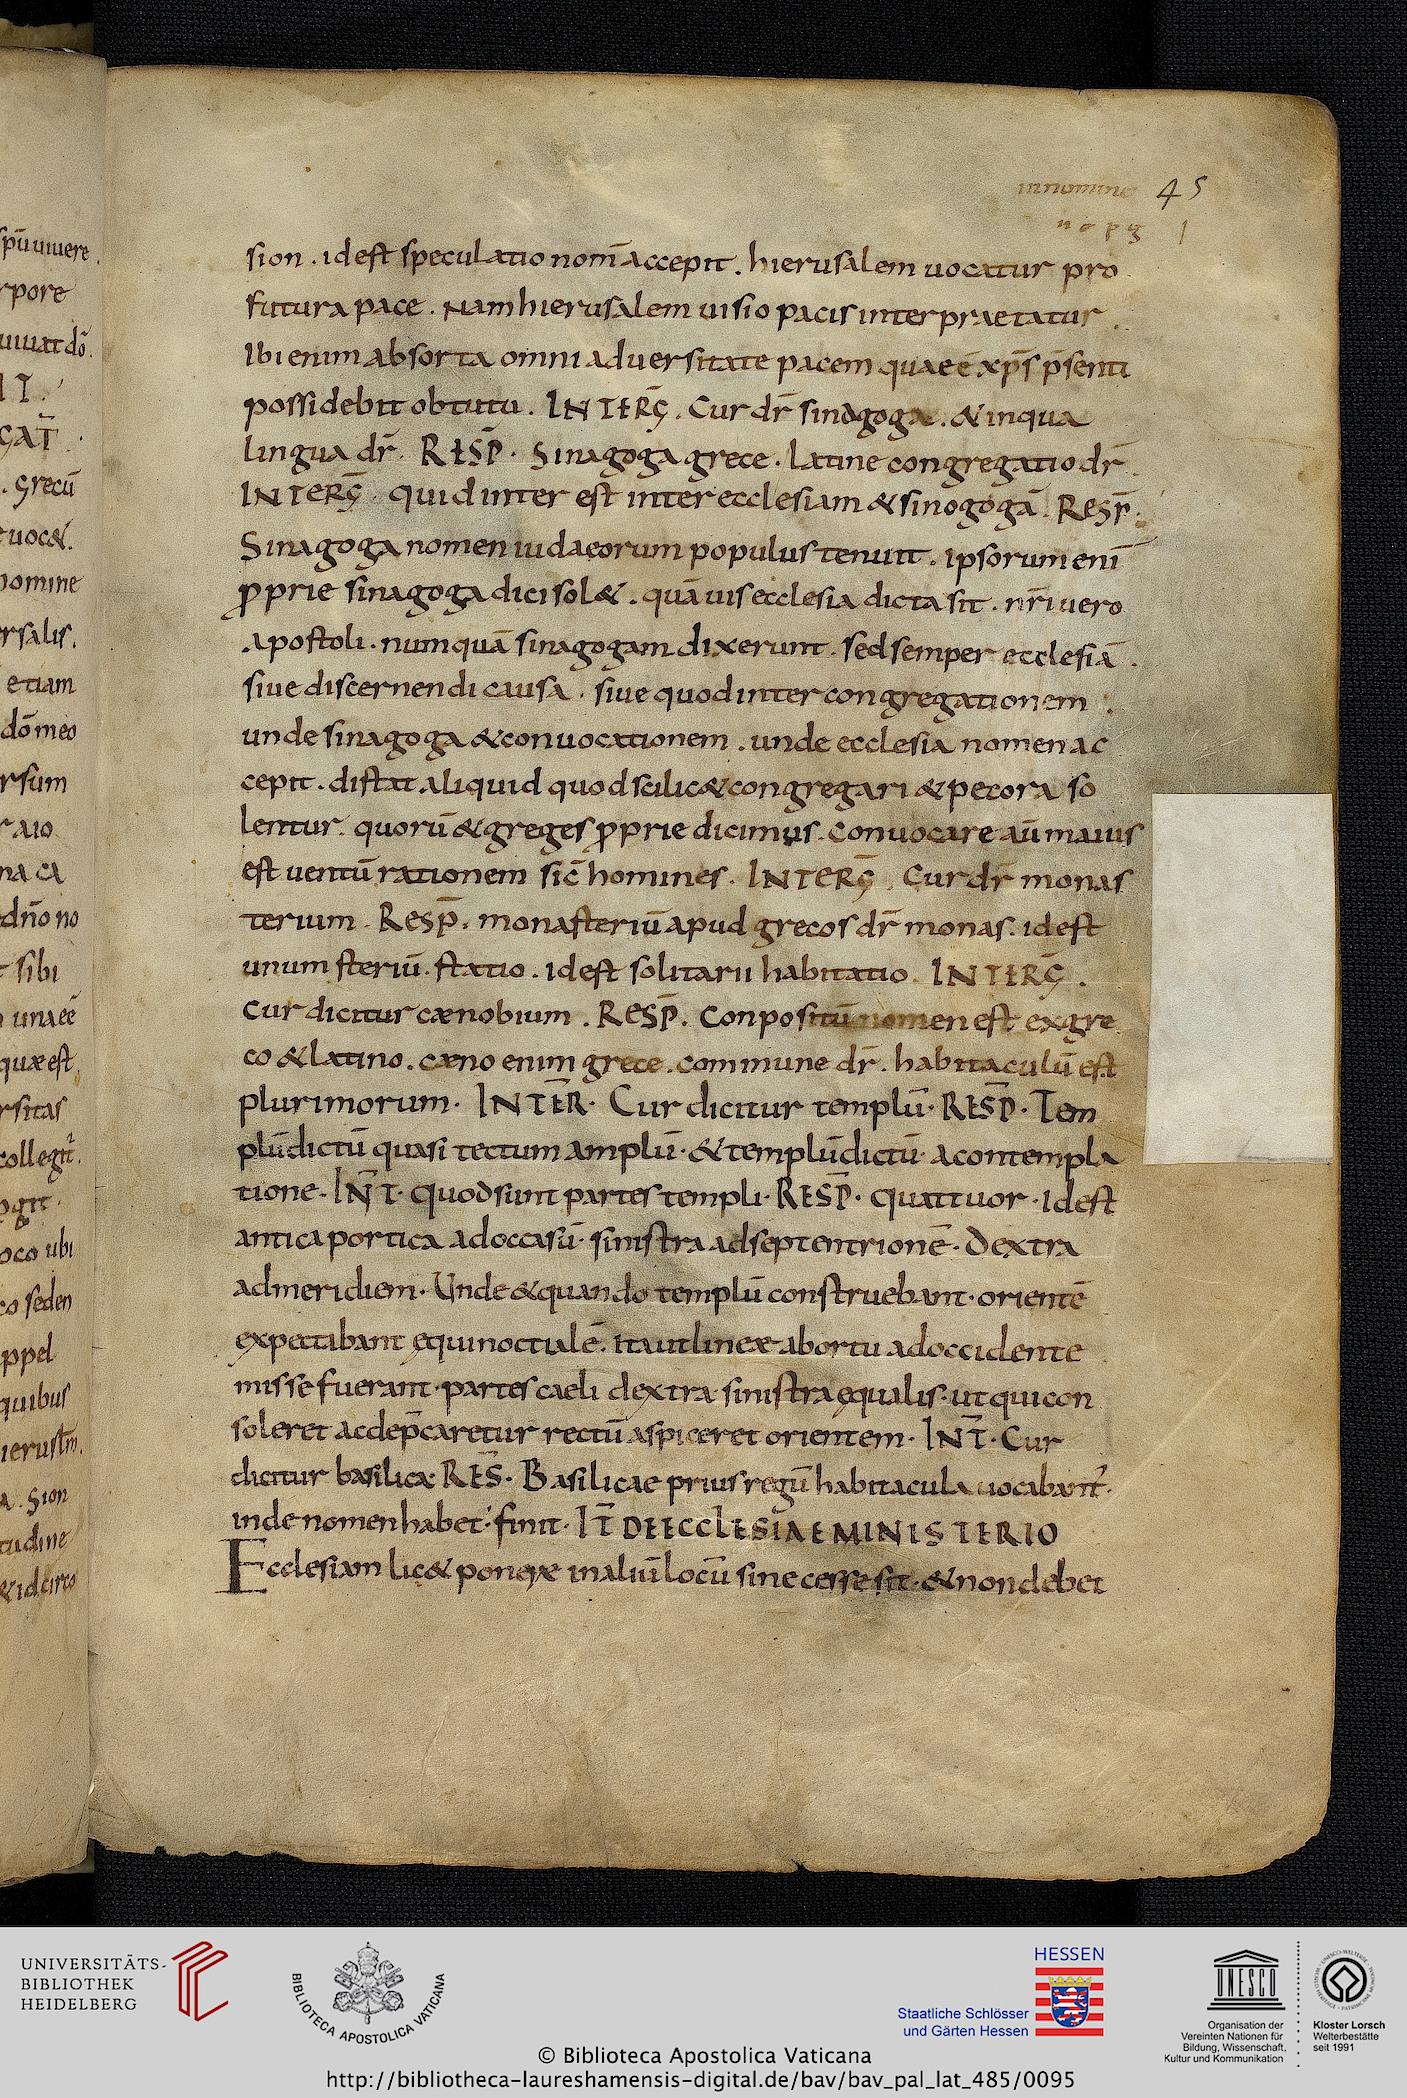 innomine 45
n o p q l
sion . id est speculatio nom̄ accepit . hierusalem uocatur pro
futura pace . Nam hierusalem uisio pacis interpraetatur .
Ibi enim absorta omni aduersitate pacem quae ē xp̄s p̄senti
possidebit obtutu . INTERḠ . Cur dr̄ sinagoga . & in qua
lingua dr̄ . RESP̄ . Sinagoga grece . latine congregatio dr̄
INTERḠ . quid inter est inter ecclesiam & sinogogā . RESP̄ .
Sinagoga nomen iudaeorum populus tenuit . ipsorum enī
ꝓprie sinagoga dici sol& . quāuis ecclesia dicta sit . nr̄i uero
apostoli . numquā sinagogam dixerunt . sed semper ecclesiā .
siue discernendi causa . siue quod inter congregationem .
unde sinagoga & conuocationem . unde ecclesia nomen ac
cepit . distat aliquid quod scilic& congregari & pecora so
lentur . quorū & greges ꝓprie dicimus . conuocare aū maius
est uentū rationem sic̄ homines . INTERḠ . Cur dr̄ monas
terium . RESP̄ . monasteriū apud grecos dr̄ monas . id est
unum steriū . statio . id est solitarii habitatio . INTERḠ .
Cur dicitur cænobium . RESP̄ . Conpositū nomen est ex gre
co & latino . cæno enim grece . commune dr̄ . habitaculū est
plurimorum · INTĒR · Cur dicitur templū · RESP̄ · Tem
plū dictū quasi tectum amplū · & templū dictū · a contempla
tione · IN̄T · Quod sunt partes templi · RESP̄ · Quattuor · id est
antica portica ad occasū · sinistra ad septentrionē · Dextra
ad meridiem · Unde & quando templū construebant · orientē
expectabant ęquinoctialē · ita ut lineæ ab ortu ad occidente
misse fuerant · partes caeli dextra sinistra ęqualis · ut qui con
soleret ac dep̄caretur rectū aspiceret orientem · IN̄T · Cur
dicitur basilica RES̄ · Basilicae prius regū habitacula uocabant᷑ ·
inde nomen habet · finit · IT̄ DE ECCLESIAE MINISTERIO
Ecclesiam lic& ponere in aliū locū si necesse sit · & non debet
spū uiuere .
rpore
uiuat dō .
IT .
GAT̄
. grecū
uoc& .
nomine
rsalis .
etiam
dō meo
rsum
raio
na ca
dn̄o no
sibi
una eē
quæ est
rsitas
collegit᷑ .
ogit
oco ubi
co seden
ppel
quibus
ierusl̄m .
a . Sion
tudine
& idcirco
UNIVERSITÄTS-
BIBLIOTHEK
HEIDELBERG
BIBLIOTECA APOSTOLICA VATICANA
HESSEN
Staatliche Schlösser
und Gärten Hessen
UNESCO
Organisation der
Vereinten Nationen für
Bildung, Wissenschaft,
Kultur und Kommunikation
Kloster Lorsch
Welterbestätte
seit 1991
© Biblioteca Apostolica Vaticana
http://bibliotheca-laureshamensis-digital.de/bav/bav_pal_lat_485/0095